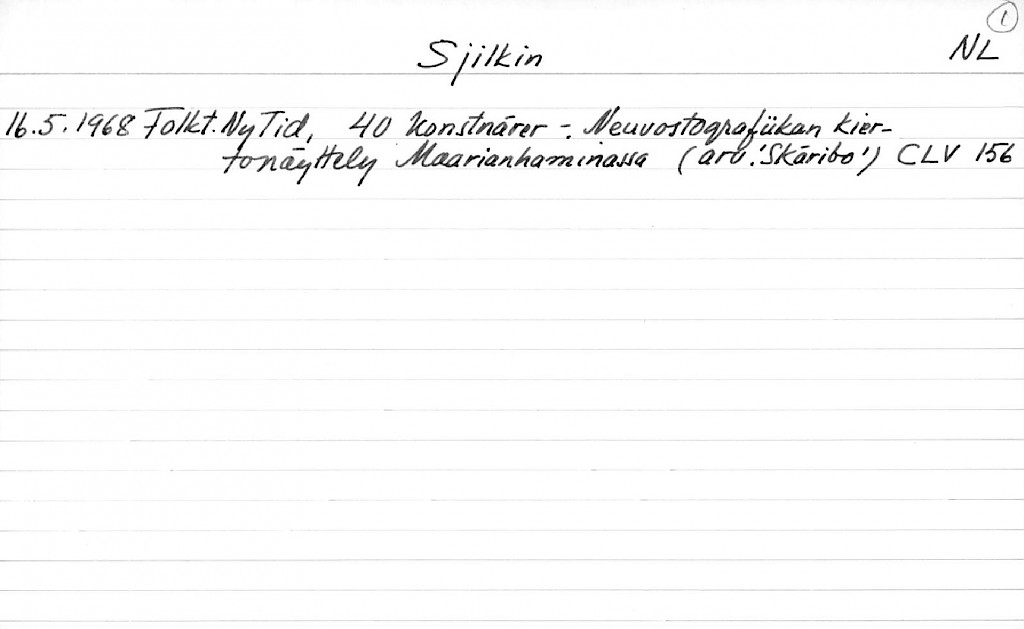 1
Sjilkin NL
16.5.1968 Folkt. Ny Tid, 40 konstnärer -. Neuvostografiikan kier-
tonäyttely Maarianhaminassa (arv. 'Skäribo') CLV 156